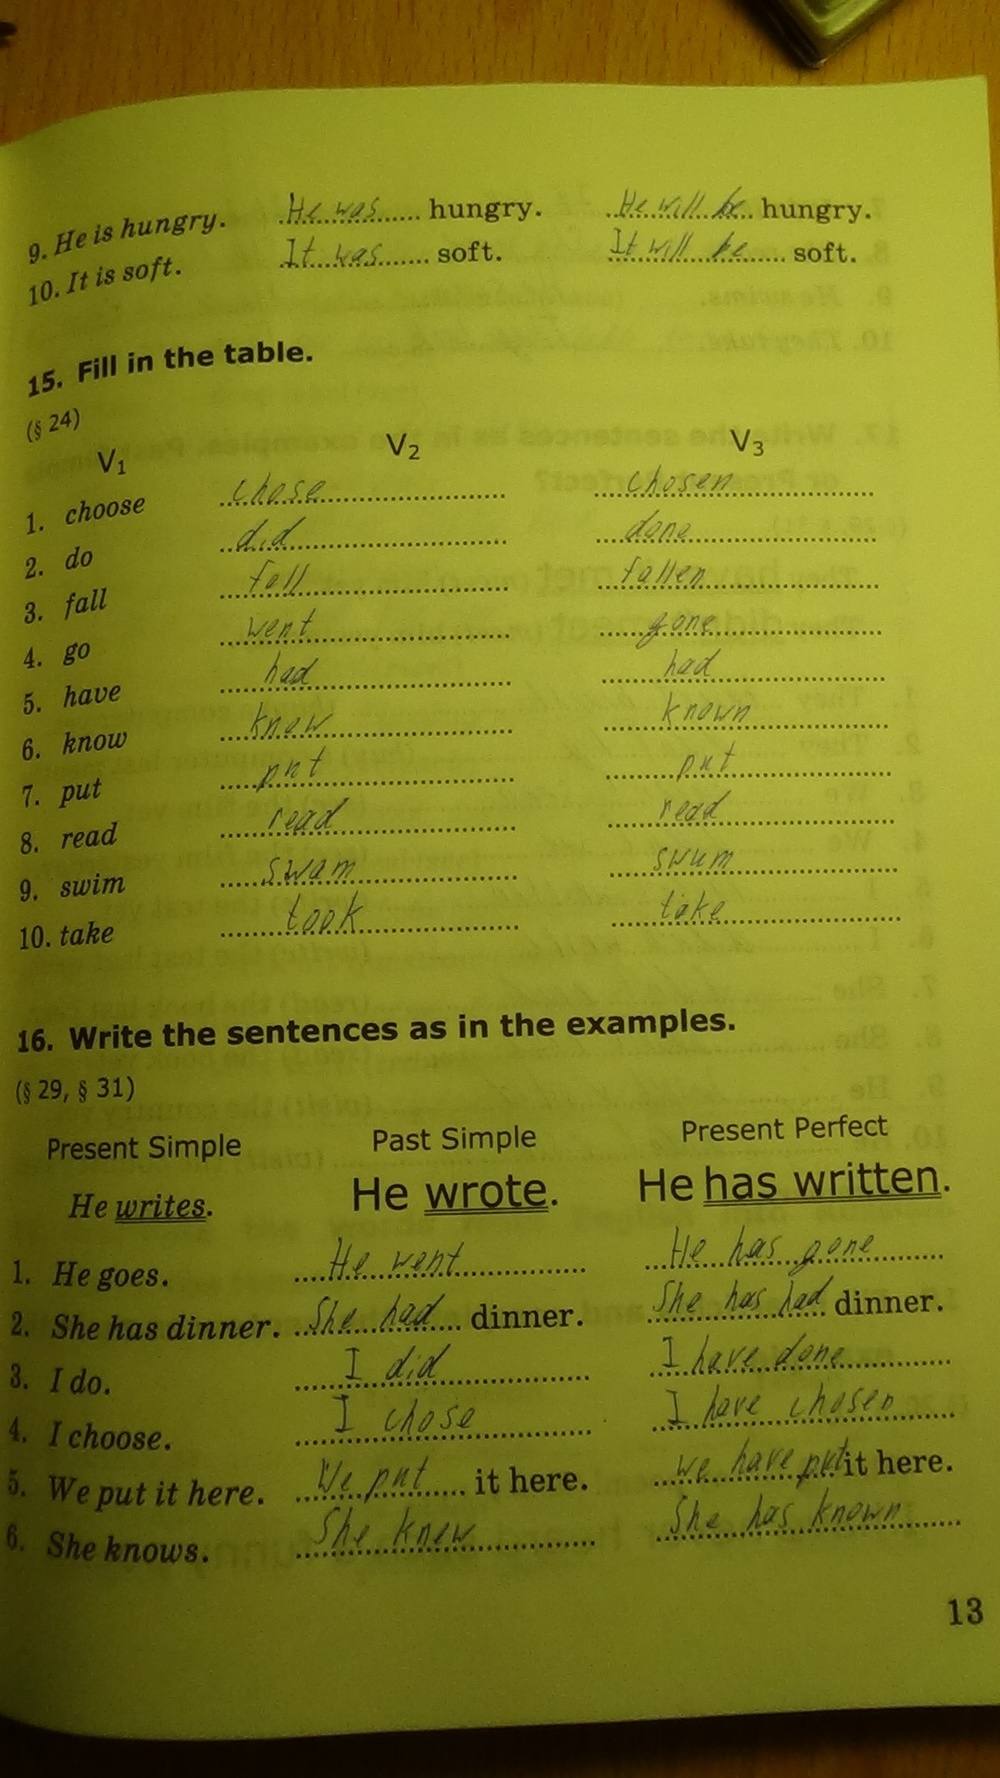 9. He is hungry. He was hungry. He will be hungry.
10. It is soft. It was soft. It will be soft.
15. Fill in the table.
(§ 24)
V1 V2 V3
1. choose chose chosen
2. do did done
3. fall fell fallen
4. go went gone
5. have had had
6. know knew known
7. put put put
8. read read read
9. swim swam swum
10. take took take
16. Write the sentences as in the examples.
(§ 29, § 31)
Present Simple Past Simple Present Perfect
He writes. He wrote. He has written.
1. He goes. He went He has gone
2. She has dinner. She had dinner. She has had dinner.
3. I do. I did I have done
4. I choose. I chose I have chosen
5. We put it here. We put it here. we have put it here.
6. She knows. She knew She has known
13